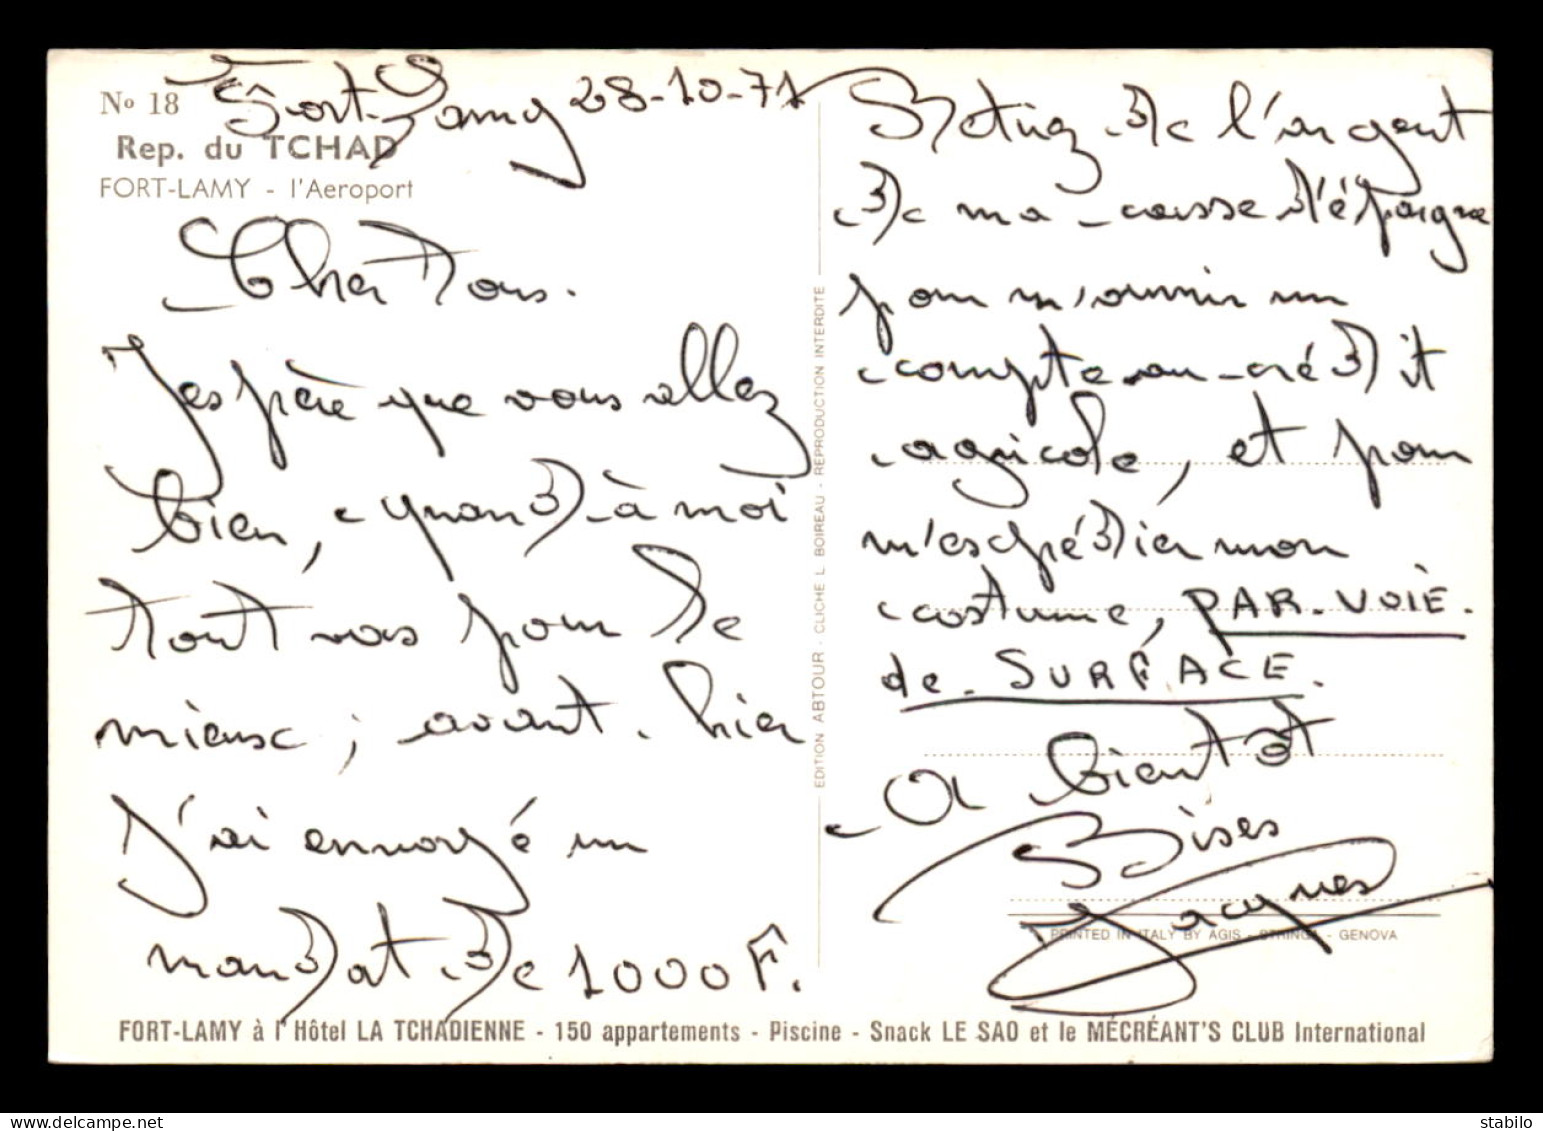 No 18
Rep. du TCHAD
FORT-LAMY - l'Aeroport
Fort-Lamy 28-10-71
Cher Tous.
J'espère que vous allez
bien, quand à moi
tout vas pour le
mieux ; avant. hier
J'ai envoyé un
mandat de 1000 F.
EDITION ABTOUR - CLICHE L. BOIREAU - REPRODUCTION INTERDITE
Retirez de l'argent
de ma caisse d'épargne
pour m'ouvrir un
compte au crédit
agricole, et pour
m'expédier mon
costume, PAR-VOIE.
de. SURFACE.
A bientôt
Bises
Jacques
PRINTED IN ITALY BY AGIS - STRINGA - GENOVA
FORT-LAMY à l'Hôtel LA TCHADIENNE - 150 appartements - Piscine - Snack LE SAO et le MÉCRÉANT'S CLUB International
slabok.delcampe.net